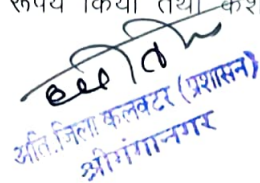 रूपये किया तथा
अति.जिला कलक्टर (प्रशासन)
श्रीगंगानगर